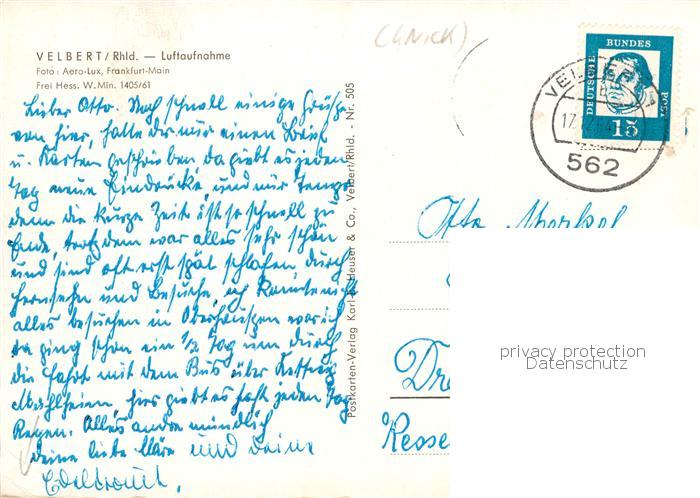 VELBERT/Rhld. — Luftaufnahme
Foto: Aero-Lux, Frankfurt-Main
Frei Hess. W. Min. 1405/61
(LNICK)
Lieber Otto. Noch schnell einige Grüße
von hier, hatte dir nur einen Brief
u. Karten geschrieben, da giebt es jeden
Tag neue Eindrücke, und nur
denn die kurze Zeit ist so schnell zu
Ende, trotzdem war alles sehr schön
und sind oft erst spät schlafen, durch
fernsehn und Besuche, ich konnte nicht
alles besuchen in Oberhausen war ich
da ging schon ein 1/2 Tag um durch
die fahrt mit dem Bus über Kettwig
Mühlheim, hier giebt es fast jeden Tag
Regen. Alles andre mündlich
deine liebe Kläre und deine
Edeltraut.
Postkarten-Verlag Karl-H. Heuser & Co., Velbert/Rhld. - Nr. 505
DEUTSCHE BUNDES POST
15
VELBERT 1
17.
562
Otto
Dre
Resse
privacy protection
Datenschutz